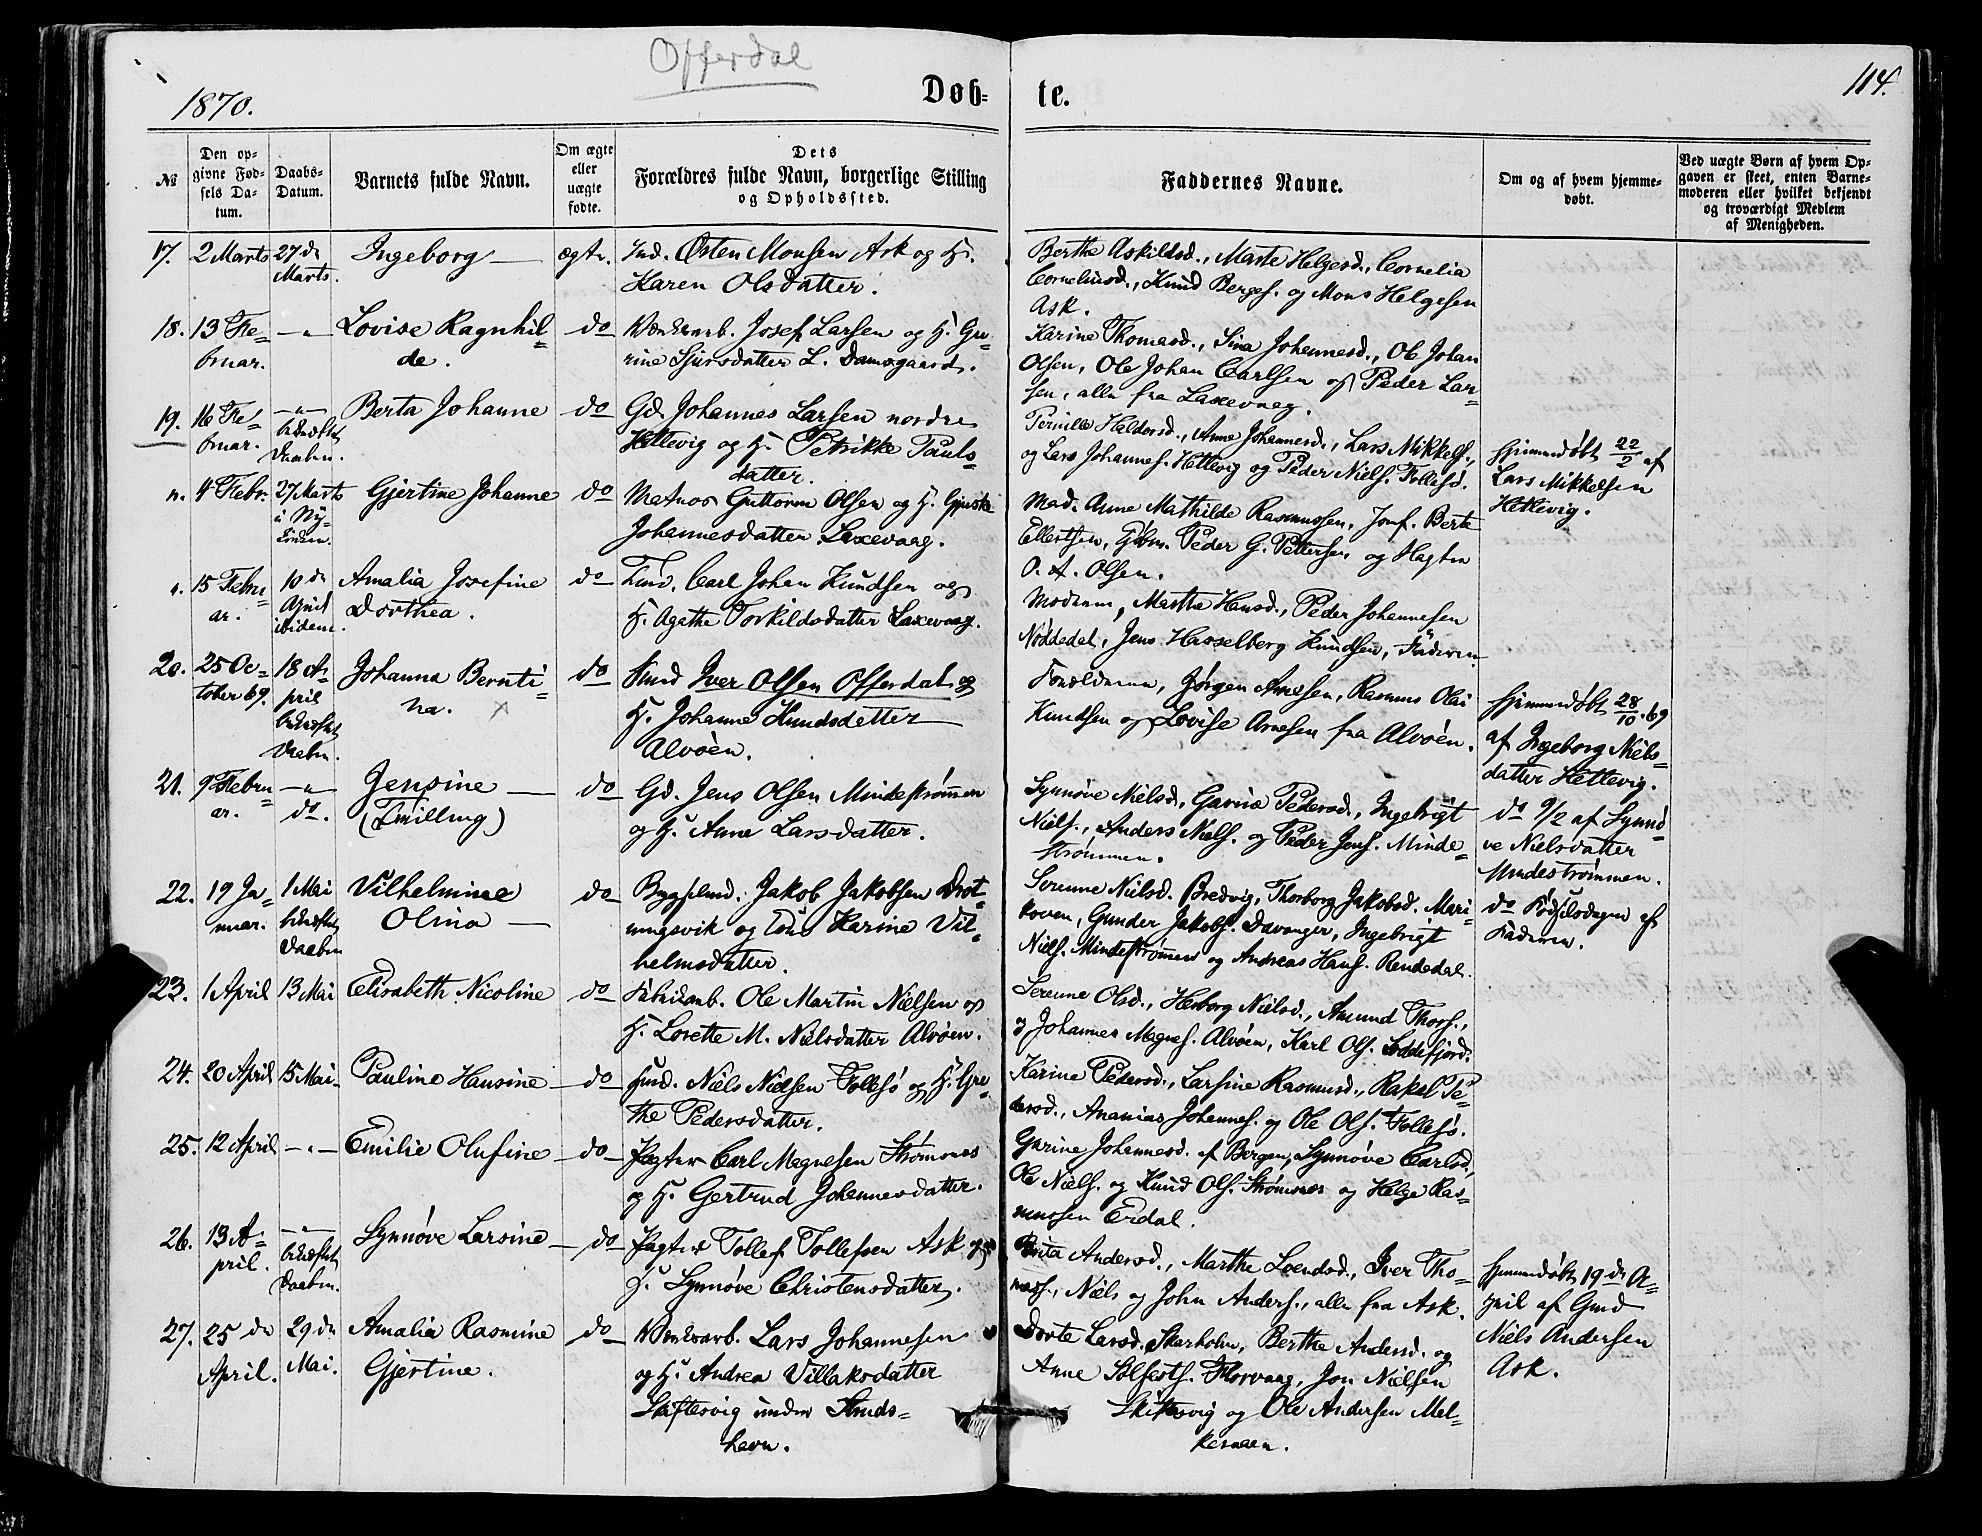 Offerdal
1870.
Døb-
te.
114.
№
Den op-
givne Fød-
sels Da-
tum.
Daabs-
Datum.
Barnets fulde Navn.
Om ægte
eller
uægte
fødte.
Dets
Forældres fulde Navn, borgerlige Stilling
og Opholdssted.
Faddernes Navne.
Om og af hvem hjemme-
døbt.
Ved uægte Børn af hvem Op-
gaven er skeet, enten Barne-
moderen eller hvilket bekjendt
og troværdigt Medlem
af Menigheden.
17. 2 Marts 27 de
Marts.
Ingeborg — ægte.
Ind. Østen Monsen Ask og H.
Karen Olsdatter.
Berthe Askildsd., Marte Helgesd., Cornelia
Corneliusd., Knud Berges. og Mons Helgesen
Ask.
18. 13 Fe-
bruar.
—"—
Lovise Ragnhil-
de.
do
Værksarb. Josef Larsen og H. Gu-
rine Sjursdatter L. Damsgaard.
Karine Thomasd., Sina Johannesd., Ole Johan
Olsen, Ole Johan Carlsen og Peder Lar-
sen, alle fra Laxevaag.
19. 16 Fe-
bruar.
—"—
bekræftet
Daaben.
Berta Johanne do
Gd. Johannes Larsen nordre
Hettevig og H. Petrikke Pauls-
datter.
Pernille Haldorsd., Anne Johannesd., Lars Mikkels.,
og Lars Johannes. Hettevig og Peder Niels. Follesø.
Hjemmedøbt 22/2 af
Lars Mikkelsen
Hettevig.
n. 4 Febr. 27 Marts
i Ny-
kirken.
Gjertine Johanne do
Matros Guttorm Olsen og H.
Johannesdatter Laxevaag.
Mad. Anne Mathilde Rasmussen, Jonf. Berte
Ellertsen, Peder G. Pettersen og
O. A. Olsen.
n. 15 Febru-
ar.
10 de
April
ibidem.
Amalia Josefine
Dorthea.
do
Carl Johan Knudsen og
H. Agathe Torkildsdatter Laxevaag.
Moderen, Martha Hansd., Peder Johannesen
Nøddedal, Jens Hasselberg Knudsen, Faderen.
20. 25 Oc-
tober 69.
18 A-
pril
bekræftet
Daaben.
Johanna Bernti-
na. x
do
Smed Iver Olsen Offerdal og
H. Johanne Knudsdatter
Alvøen.
Forældrene, Jørgen Arnesen, Rasmus Olai
Knudsen og Lovise Arnesen fra Alvøen.
Hjemmedøbt 28/10. 69
af Ingeborg Niels-
datter Hettevig.
21. 9 Febru-
ar.
—"—
do.
Jensine —
(Tvilling)
do
Gd. Jens Olsen Mindestrømmen
og H. Anne Larsdatter.
Synnøve Nielsd., Garina Pedersd., Ingebrigt
Niels., Anders Niels. og Peder Jens. Minde-
strømmen.
do 9/2 af Synnø-
ve Nielsdatter
Mindestrømmen.
22. 19 Ja-
nuar.
1 Mai
bekræftet
Daaben
Vilhelmine
Olina —
do
Bygselmd. Jakob Jakobsen Drot-
ningsvik og Karine Vil-
helmsdatter.
Serenne Nielsd. Bredvig, Thorborg Jakobsd. Mari-
koven, Gunder Jakobs. Davanger, Ingebrigt
Niels. Mindestrømmen og Andreas Hans. Rendedal.
do Fødselsdagen af
Faderen.
23. 1 April 13 Mai Elisabeth Nicoline do
Fabrikarb. Ole Martin Nielsen og
H. Lorette M. Nielsdatter Alvøen.
Serenne Olsd., Herborg Nielsd., Amund Thors.,
og Johannes Magnes. Alvøen, Karl Ols. Loddefjord.
24. 20 April 15 Mai Pauline Hansine do
Huusmd. Niels Nielsen Follesø og H. Gre-
the Pedersdatter.
Karine Pedersd., Larsine Rasmusd., Rakel Pe-
dersd., Ananias Johannes. og Ole Ols. Follesø.
25. 12 April —"— Emilie Olufine do
Jægter Carl Magnesen Strømsnes
og H. Gertrud Johannesdatter.
Gurine Johannesd. af Bergen, Synnøve Carlsd.,
Ole Niels. og Knud Ols. Strømsnes og Helge Ras-
mussen Erdal.
26. 13 A-
pril.
—"—
bekræftet
Daaben.
Synnøve Larsine do
Jægter Tollef Tollefsen Ask og
H. Synnøve Christensdatter.
Brita Andersd., Marthe Svendsd., Iver Tho-
mas., Niels og John Anders., alle fra Ask.
Hjemmedøbt 19 de A-
pril af Gmd
Niels Andersen
Ask.
27. 25 de
April.
29 de
Mai.
Amalia Rasmine
Gjertine.
do
Værksarb. Lars Johannesen
og H. Andrea Villaksdatter
Skiftesvig under Struds-
havn.
Dorte Larsd. Skarholm, Berthe Andersd. og
Anne Solfests. Florvaag, Jon Nielsen
Skiftesvig og Ole Andersen Mel-
keraaen.